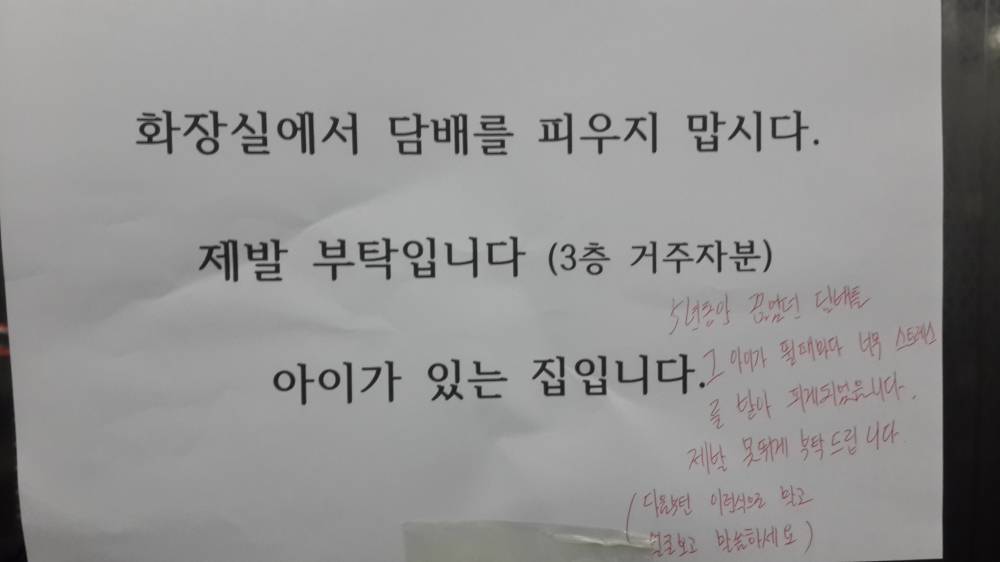 화장실에서 담배를 피우지 맙시다.
제발 부탁입니다 (3층 거주자분)
아이가 있는 집입니다.
5년동안 끊었던 담배를
그 아이가 뛸때마다 너무 스트레스
를 받아 피게되었습니다.
제발 못뛰게 부탁드립니다
(다음부턴 이런식으로 말고
얼굴보고 말씀하세요)